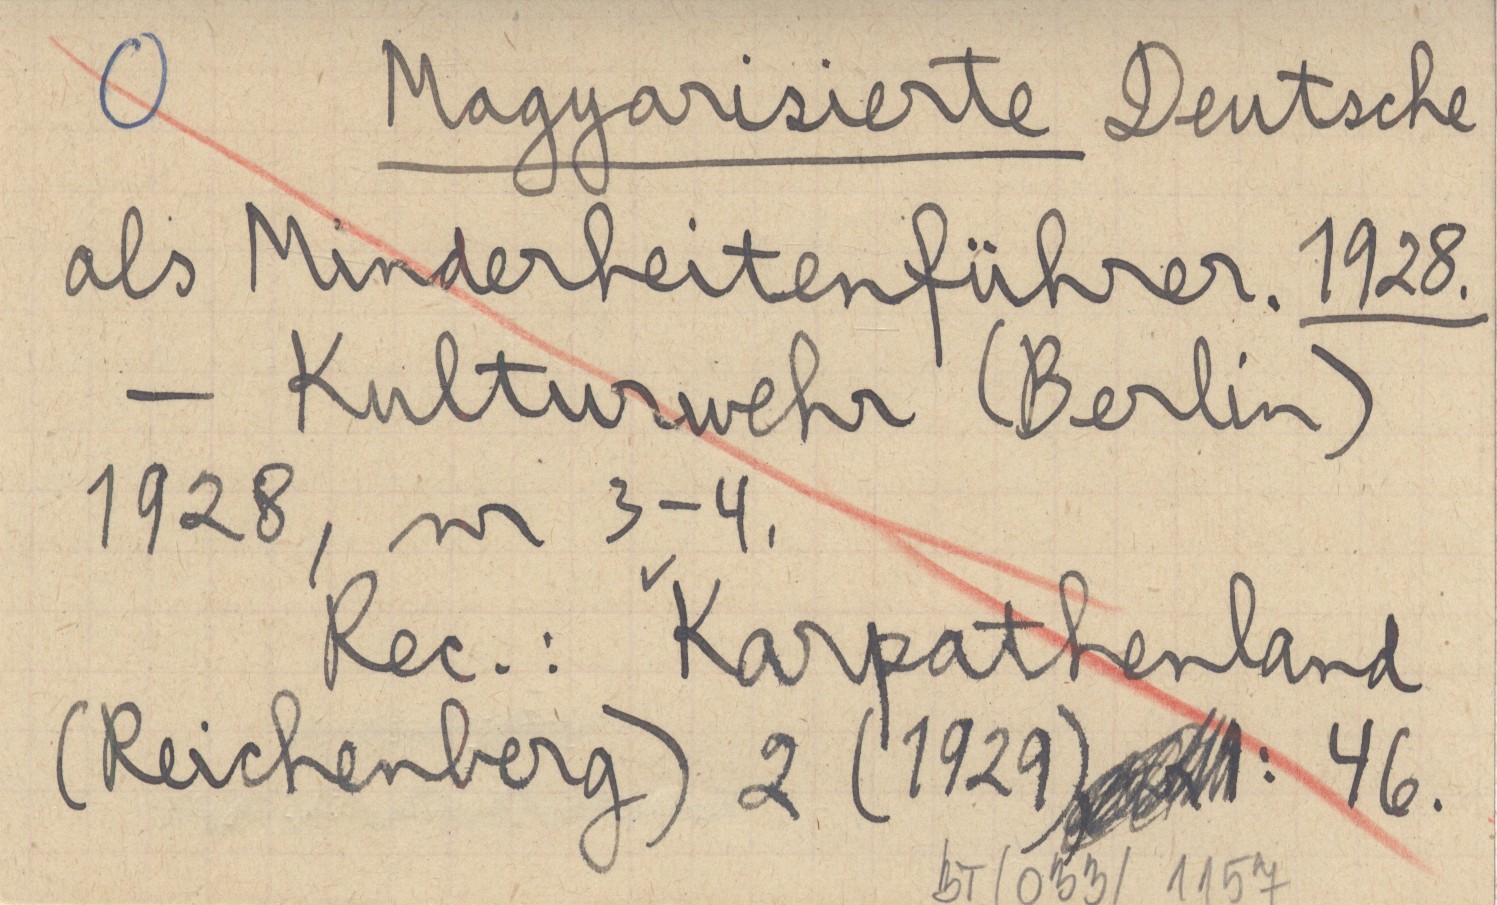 O Magyarisierte Deutsche
als Minderheitenführer. 1928.
— Kulturwehr (Berlin)
1928, nr 3–4.
Rec.: ✓Karpathenland
(Reichenberg) 2 (1929) : 46.
BT/033/ 1157